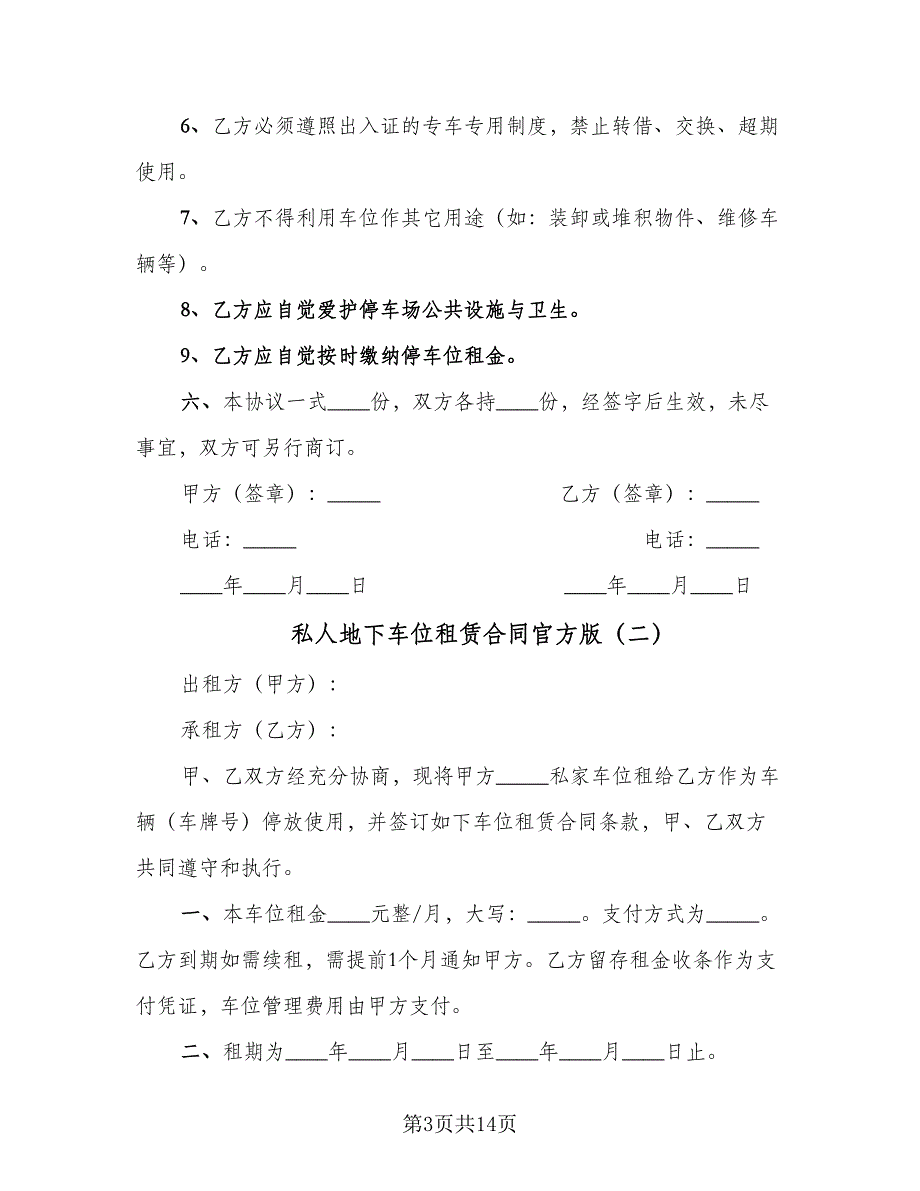 6、乙方必须遵照出入证的专车专用制度，禁止转借、交换、超期
使用。
7、乙方不得利用车位作其它用途（如：装卸或堆积物件、维修车
辆等）。
8、乙方应自觉爱护停车场公共设施与卫生。
9、乙方应自觉按时缴纳停车位租金。
六、本协议一式____份，双方各持____份，经签字后生效，未尽
事宜，双方可另行商订。
甲方（签章）：_____ 乙方（签章）：_____
电话：_____ 电话：_____
____年____月____日 ____年____月____日
私人地下车位租赁合同官方版（二）
出租方（甲方）：
承租方（乙方）：
甲、乙双方经充分协商，现将甲方_____私家车位租给乙方作为车
辆（车牌号）停放使用，并签订如下车位租赁合同条款，甲、乙双方
共同遵守和执行。
一、本车位租金____元整/月，大写：_____。支付方式为_____。
乙方到期如需续租，需提前1个月通知甲方。乙方留存租金收条作为支
付凭证，车位管理费用由甲方支付。
二、租期为____年____月____日至____年____月____日止。
第3页共14页